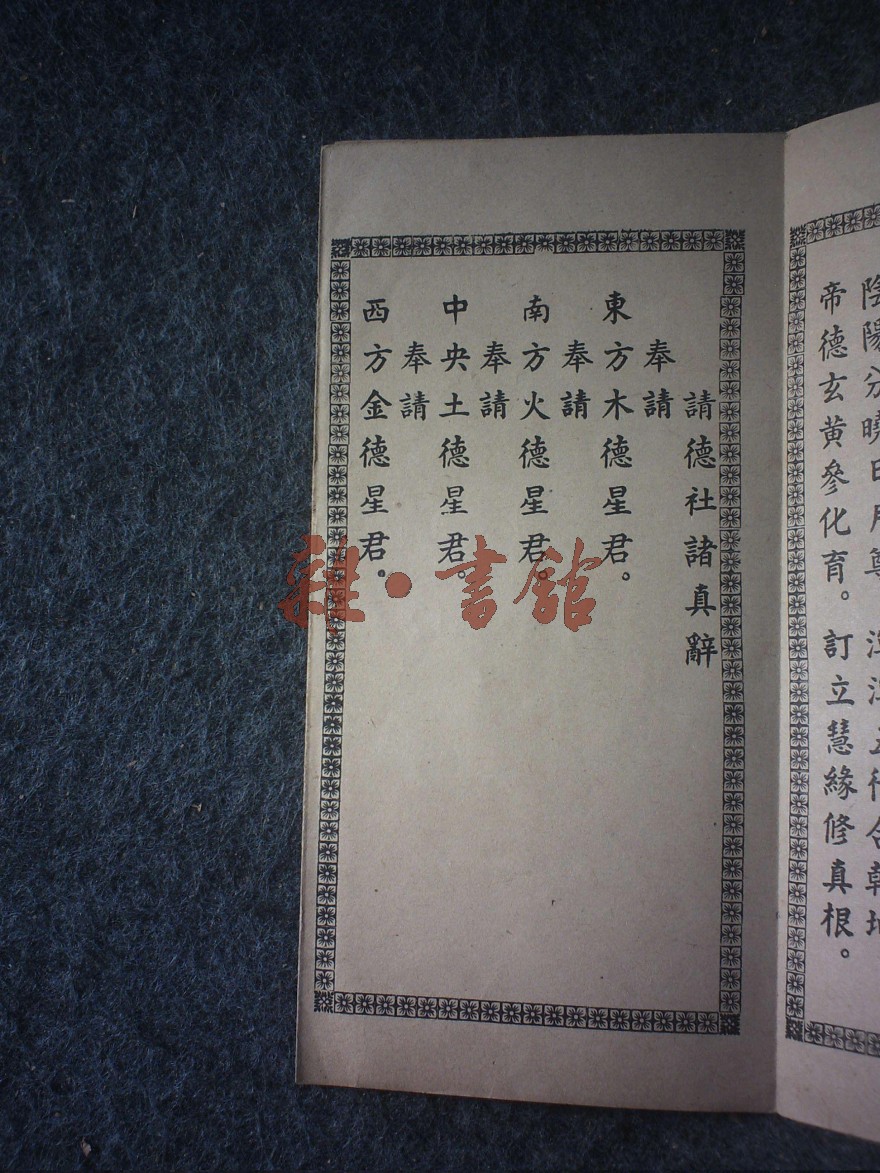 陰陽分曉日月尊 渾渾五行合乾坤
帝德玄黃參化育。訂立慧緣修真根。
請德社諸真辭
奉請
東方木德星君。
奉請
南方火德星君。
奉請
中央土德星君。
奉請
西方金德星君。
雜·書館